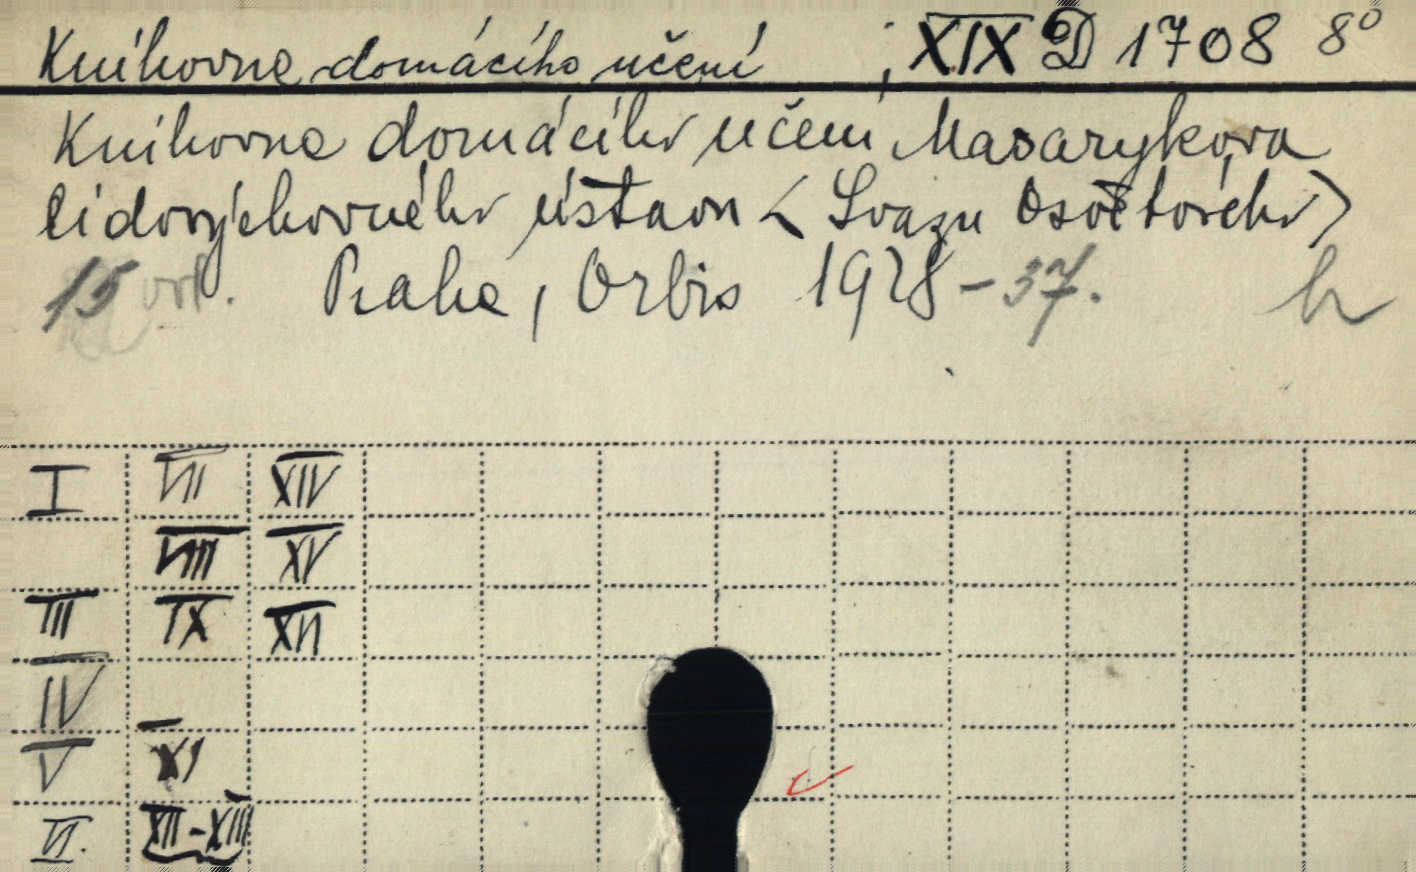 Knihovna domácího učení ; XIX D 1708 8°
Knihovna domácího učení Masarykova
lidovýchovného ústavu < Svazu osvětového >
15 Praha, Orbis 1928-37. h
I VII XIV
VIII XV
III IX XVI
IV
V XI
VI. XII-XIII